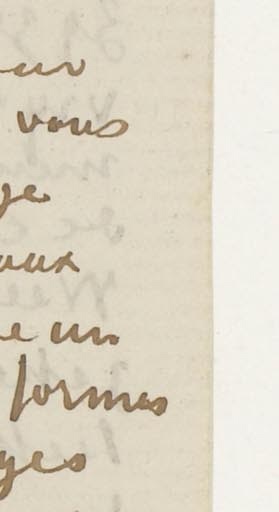 vous
ge
aux
e un
formes
ges